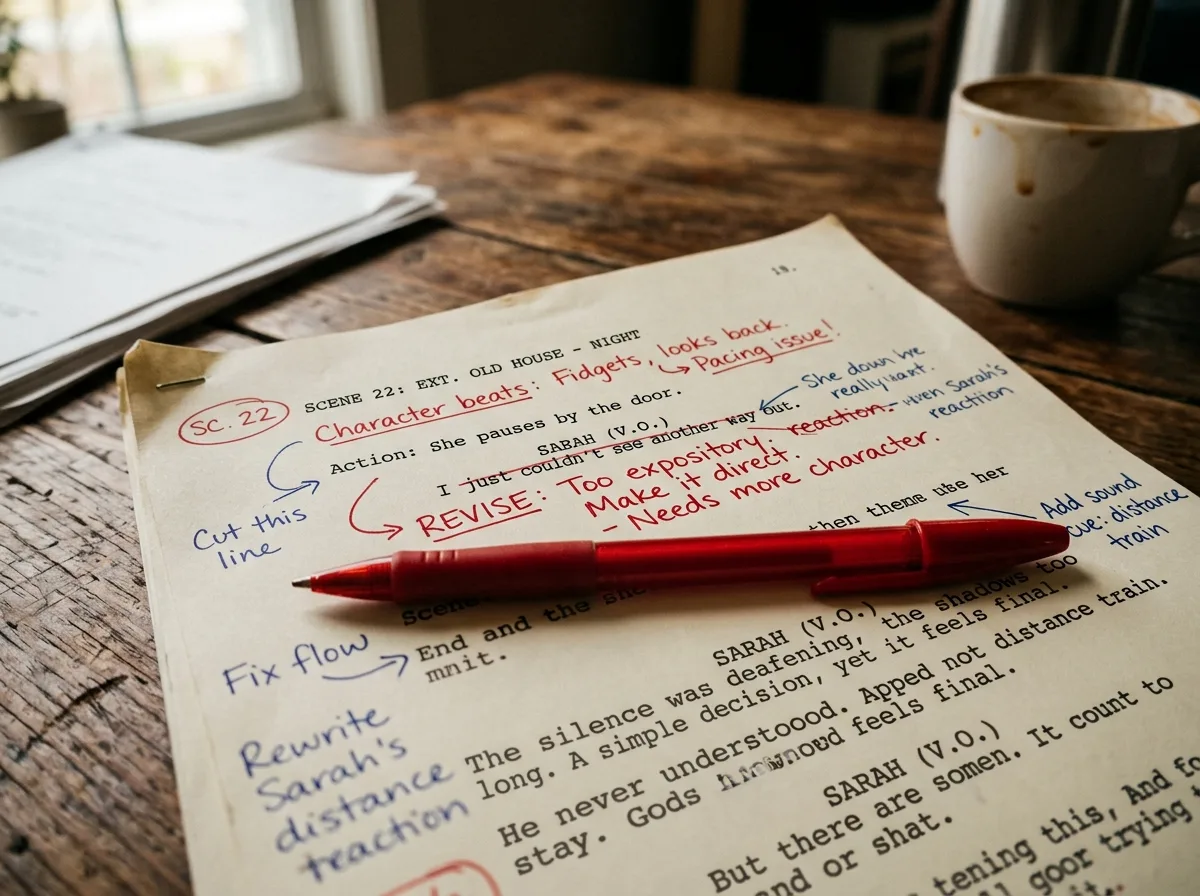 19.
SCENE 22: EXT. OLD HOUSE - NIGHT
SC. 22
Character beats: Fidgets, looks back.
Pacing issue!
Action: She pauses by the door.
SARAH (V.O.)
I just couldn't see another way out.
She down
really
Sarah's
reaction
Cut this
line
REVISE: Too expository. reaction.
Make it direct.
- Needs more character.
then use her
Add sound
cue: distance
train
Scene
End and the she
mnit.
Fix flow
Rewrite
Sarah's
distance
reaction
SARAH (V.O.)
The silence was deafening, the shadows too
long. A simple decision, yet it feels final.
He never understoood. Apped not distance train.
stay. Gods feels final.
SARAH (V.O.)
But there are somen. It count to
and or shat.
tening this, And fo
goor trying